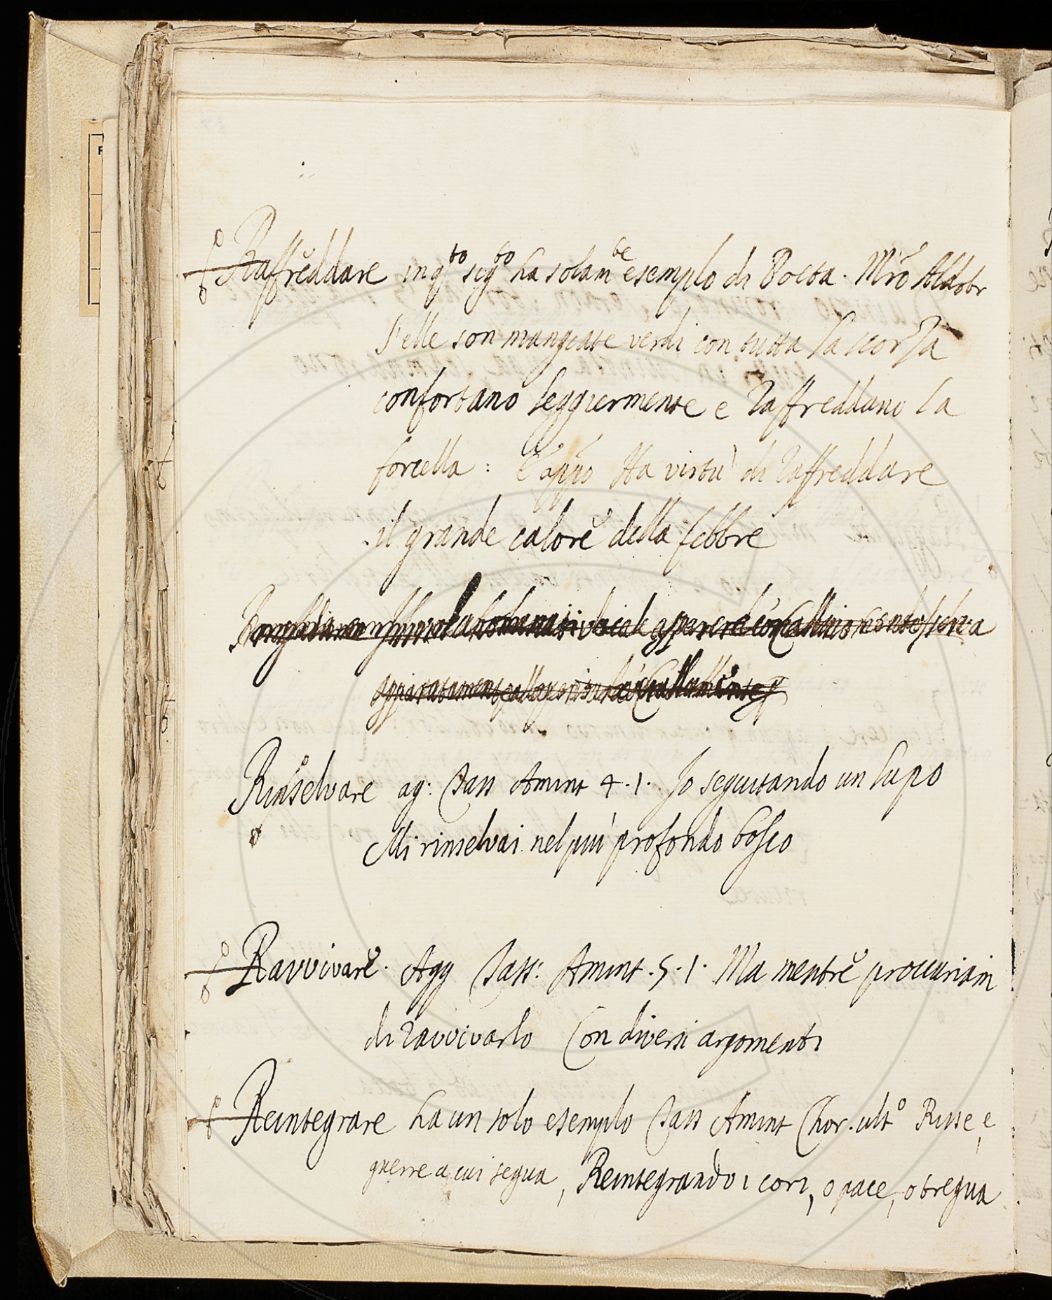 Raffreddare in q.to sig.to ha solam.te esemplo di Poeta. M.ro Aldobr
S'elle son mangiate verdi con tutta la scorza
confortano leggiermente e raffreddano la
forcella: E app.o Ha virtù di raffreddare
il grande calore della febbre
Rinselvare ag: Tass Amint 4.1. Io seguitando un lupo
Mi rinselvai nel più profondo bosco
Ravvivare. Agg Tass: Amint. 5.1. Ma mentre procuriam
di ravvivarlo Con diversi argomenti
Reintegrare ha un solo esemplo Tass Amint Chor. ult.o Risse, e
guerre a cui segua, Reintegrando i cori, o pace, o tregua